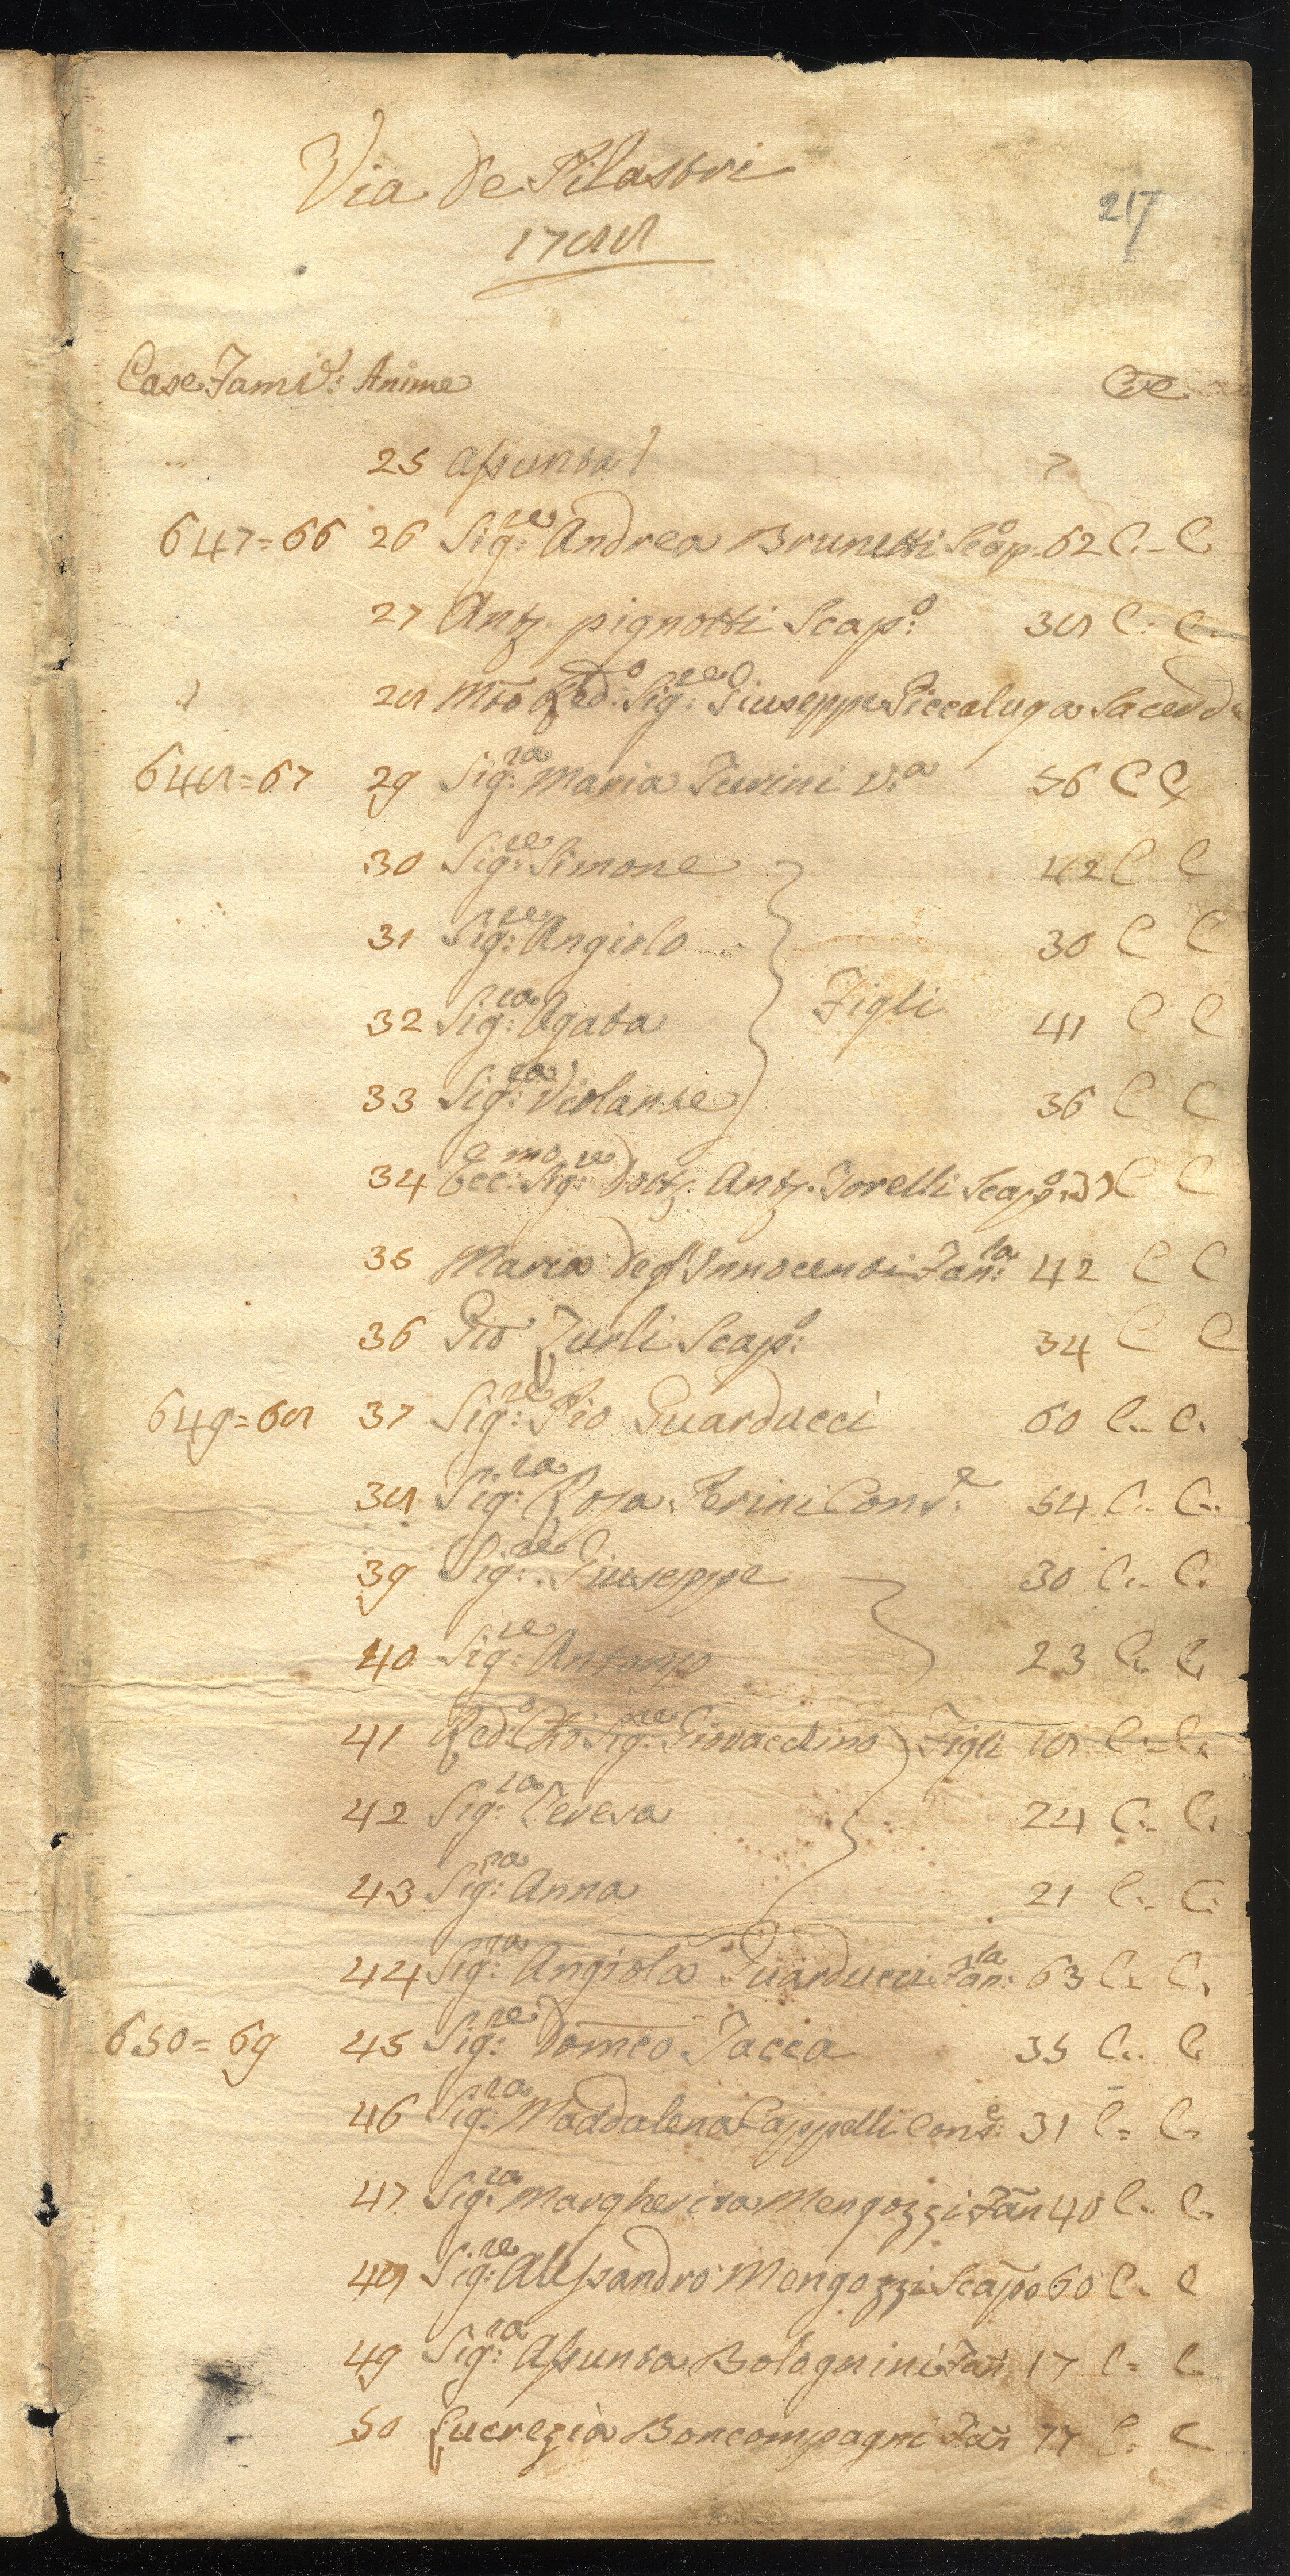 Via de Pilastri
217
1788
Case Famil: Anime Cre
25 Assunta 7
647=66 26 Sig:re Andrea Brunetti Scap:o 62 C. C
27 Ant.o pignotti Scap:o 38 C. C.
28 Mto Red:o Sig:re Giuseppe Piccaluga Sacerd
648=67 29 Sig:ra Maria Turini V:a 56 C C
30 Sig:re Simone 42 C C
31 Sig:re Angiolo 30 C C
Figli
32 Sig:ra Agata 41 C C
33 Sig:ra Violante 36 C C
34 Ecc:mo Sig:re Dott.e Ant.o Torelli Scap:o C C
35 Maria degl'Innocenti Fan:la 42 C C
36 Gio Zurli Scap:o 34 C C
649=68 37 Sig:re Pio Guarducci 60 C. C.
38 Sig:ra Rosa Perini Cons:e 54 C. C.
39 Sig:re Giuseppe 30 C. C.
40 Sig:re Antonio 23 C. C.
41 Red:o Cho Sig:re Giovacchino Figli 18 C. C.
42 Sig:ra Teresa 24 C. C.
43 Sig:ra Anna 21 C. C.
44 Sig:ra Angiola Guarducci Fan:la 63 C. C.
650=69 45 Sig:re Domco Faccia 35 C. C
46 Sig:ra Maddalena Cappelli Cons:e 31 C. C.
47 Sig:ra Margherita Mengozzi Fan 40 C. C.
48 Sig:re Alessandro Mengozzi Scapo 60 C. C
49 Sig:ra Assunta Bolognini Fan 17 C. C.
50 Lucrezia Boncompagni Fan 77 C. C